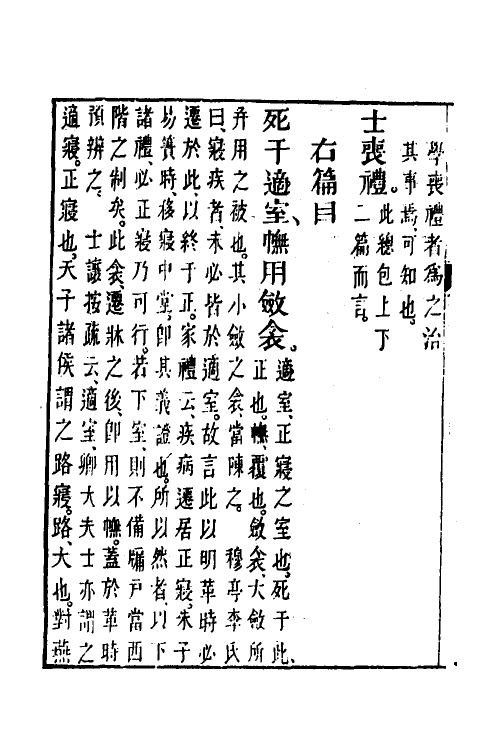 學喪禮者為之治
其事焉可知也。
士喪禮。此總包上下
二篇而言。
右篇目
死于適室、幠用斂衾。適室、正寢之室也。死于此、
正也。幠、覆也。斂衾、大斂所
并用之被也。其小斂之衾、當陳之。　穆亭李氏
曰、寢疾者、未必皆於適室。故言此以明革時必
遷於此、以終于正。家禮云、疾病遷居正寢。朱子
易簀時、移寢中堂、卽其義證也。所以然者、以下
諸禮、必正寢乃可行。若下室、則不備牖戶當西
階之制矣。此衾、遷牀之後、卽用以幠。蓋於革時
預辨之。　士讓按疏云、適室、卿大夫士亦謂之
適寢。正寢也。天子諸侯謂之路寢。路、大也。對燕